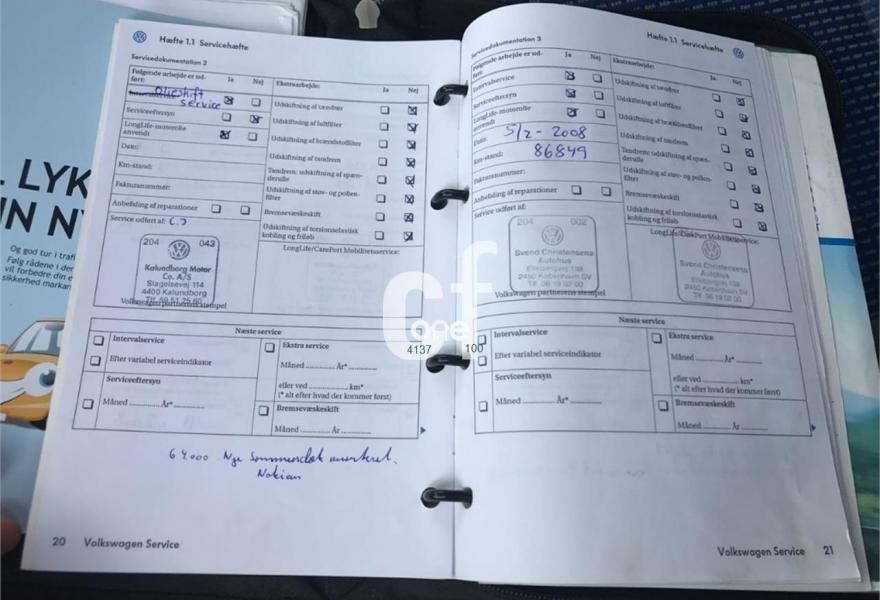 LYK
N NY
Og god tur i trafi
Følg rådene i der
vil forbedre din e
sikkerhed markan
Hæfte 1.1 Servicehæfte
Servicedokumentation 2
Følgende arbejde er ud-
ført:
Ja
Nej
Ekstraarbejde:
Ja
Nej
Olieskift
Service
Serviceeftersyn
LongLife-motorolie
anvendt
Dato:
Km-stand:
Fakturanummer:
Anbefaling af reparationer
Udskiftning af tændrør
Udskiftning af luftfilter
Udskiftning af brændstoffilter
Udskiftning af tandrem
Tandrem: udskiftning af spæn-
derulle
Udskiftning af støv- og pollen-
filter
Bremsevæskeskift
Udskiftning af torsionselastisk
kobling og friløb
Service udført af:
LongLife/CarePort Mobilitetsservice:
204 043
Kalundborg Motor
Co. A/S
Slagelsevej 114
4400 Kalundborg
Tlf. 59 51 25 60
Volkswagen partnerens stempel
Næste service
Intervalservice
Efter variabel serviceindikator
Serviceeftersyn
Måned År*
Ekstra service
Måned År*
eller ved km*
(* alt efter hvad der kommer først)
Bremsevæskeskift
Måned År
64.000 Nye Sommerdæk monteret.
Nokian
20 Volkswagen Service
Hæfte 1.1 Servicehæfte
Servicedokumentation 3
Følgende arbejde er ud-
ført:
Ja
Nej
Ekstraarbejde:
Ja
Nej
Intervalservice
Serviceeftersyn
LongLife-motorolie
anvendt
Dato: 5/2-2008
Km-stand: 86849
Fakturanummer:
Anbefaling af reparationer
Udskiftning af tændrør
Udskiftning af luftfilter
Udskiftning af brændstoffilter
Udskiftning af tandrem
Tandrem: udskiftning af spæn-
derulle
Udskiftning af støv- og pollen-
filter
Bremsevæskeskift
Udskiftning af torsionselastisk
kobling og friløb
Service udført af:
LongLife/CarePort Mobilitetsservice:
204 002
Svend Christensens
Autohus
2450 København SV
Volkswagen partnerens stempel
Svend Christensens
Autohus
2450 København SV
Næste service
Intervalservice
Efter variabel serviceindikator
Serviceeftersyn
Måned År*
Ekstra service
Måned År*
eller ved km*
(* alt efter hvad der kommer først)
Bremsevæskeskift
Måned År
Volkswagen Service 21
cf
one
4137 100